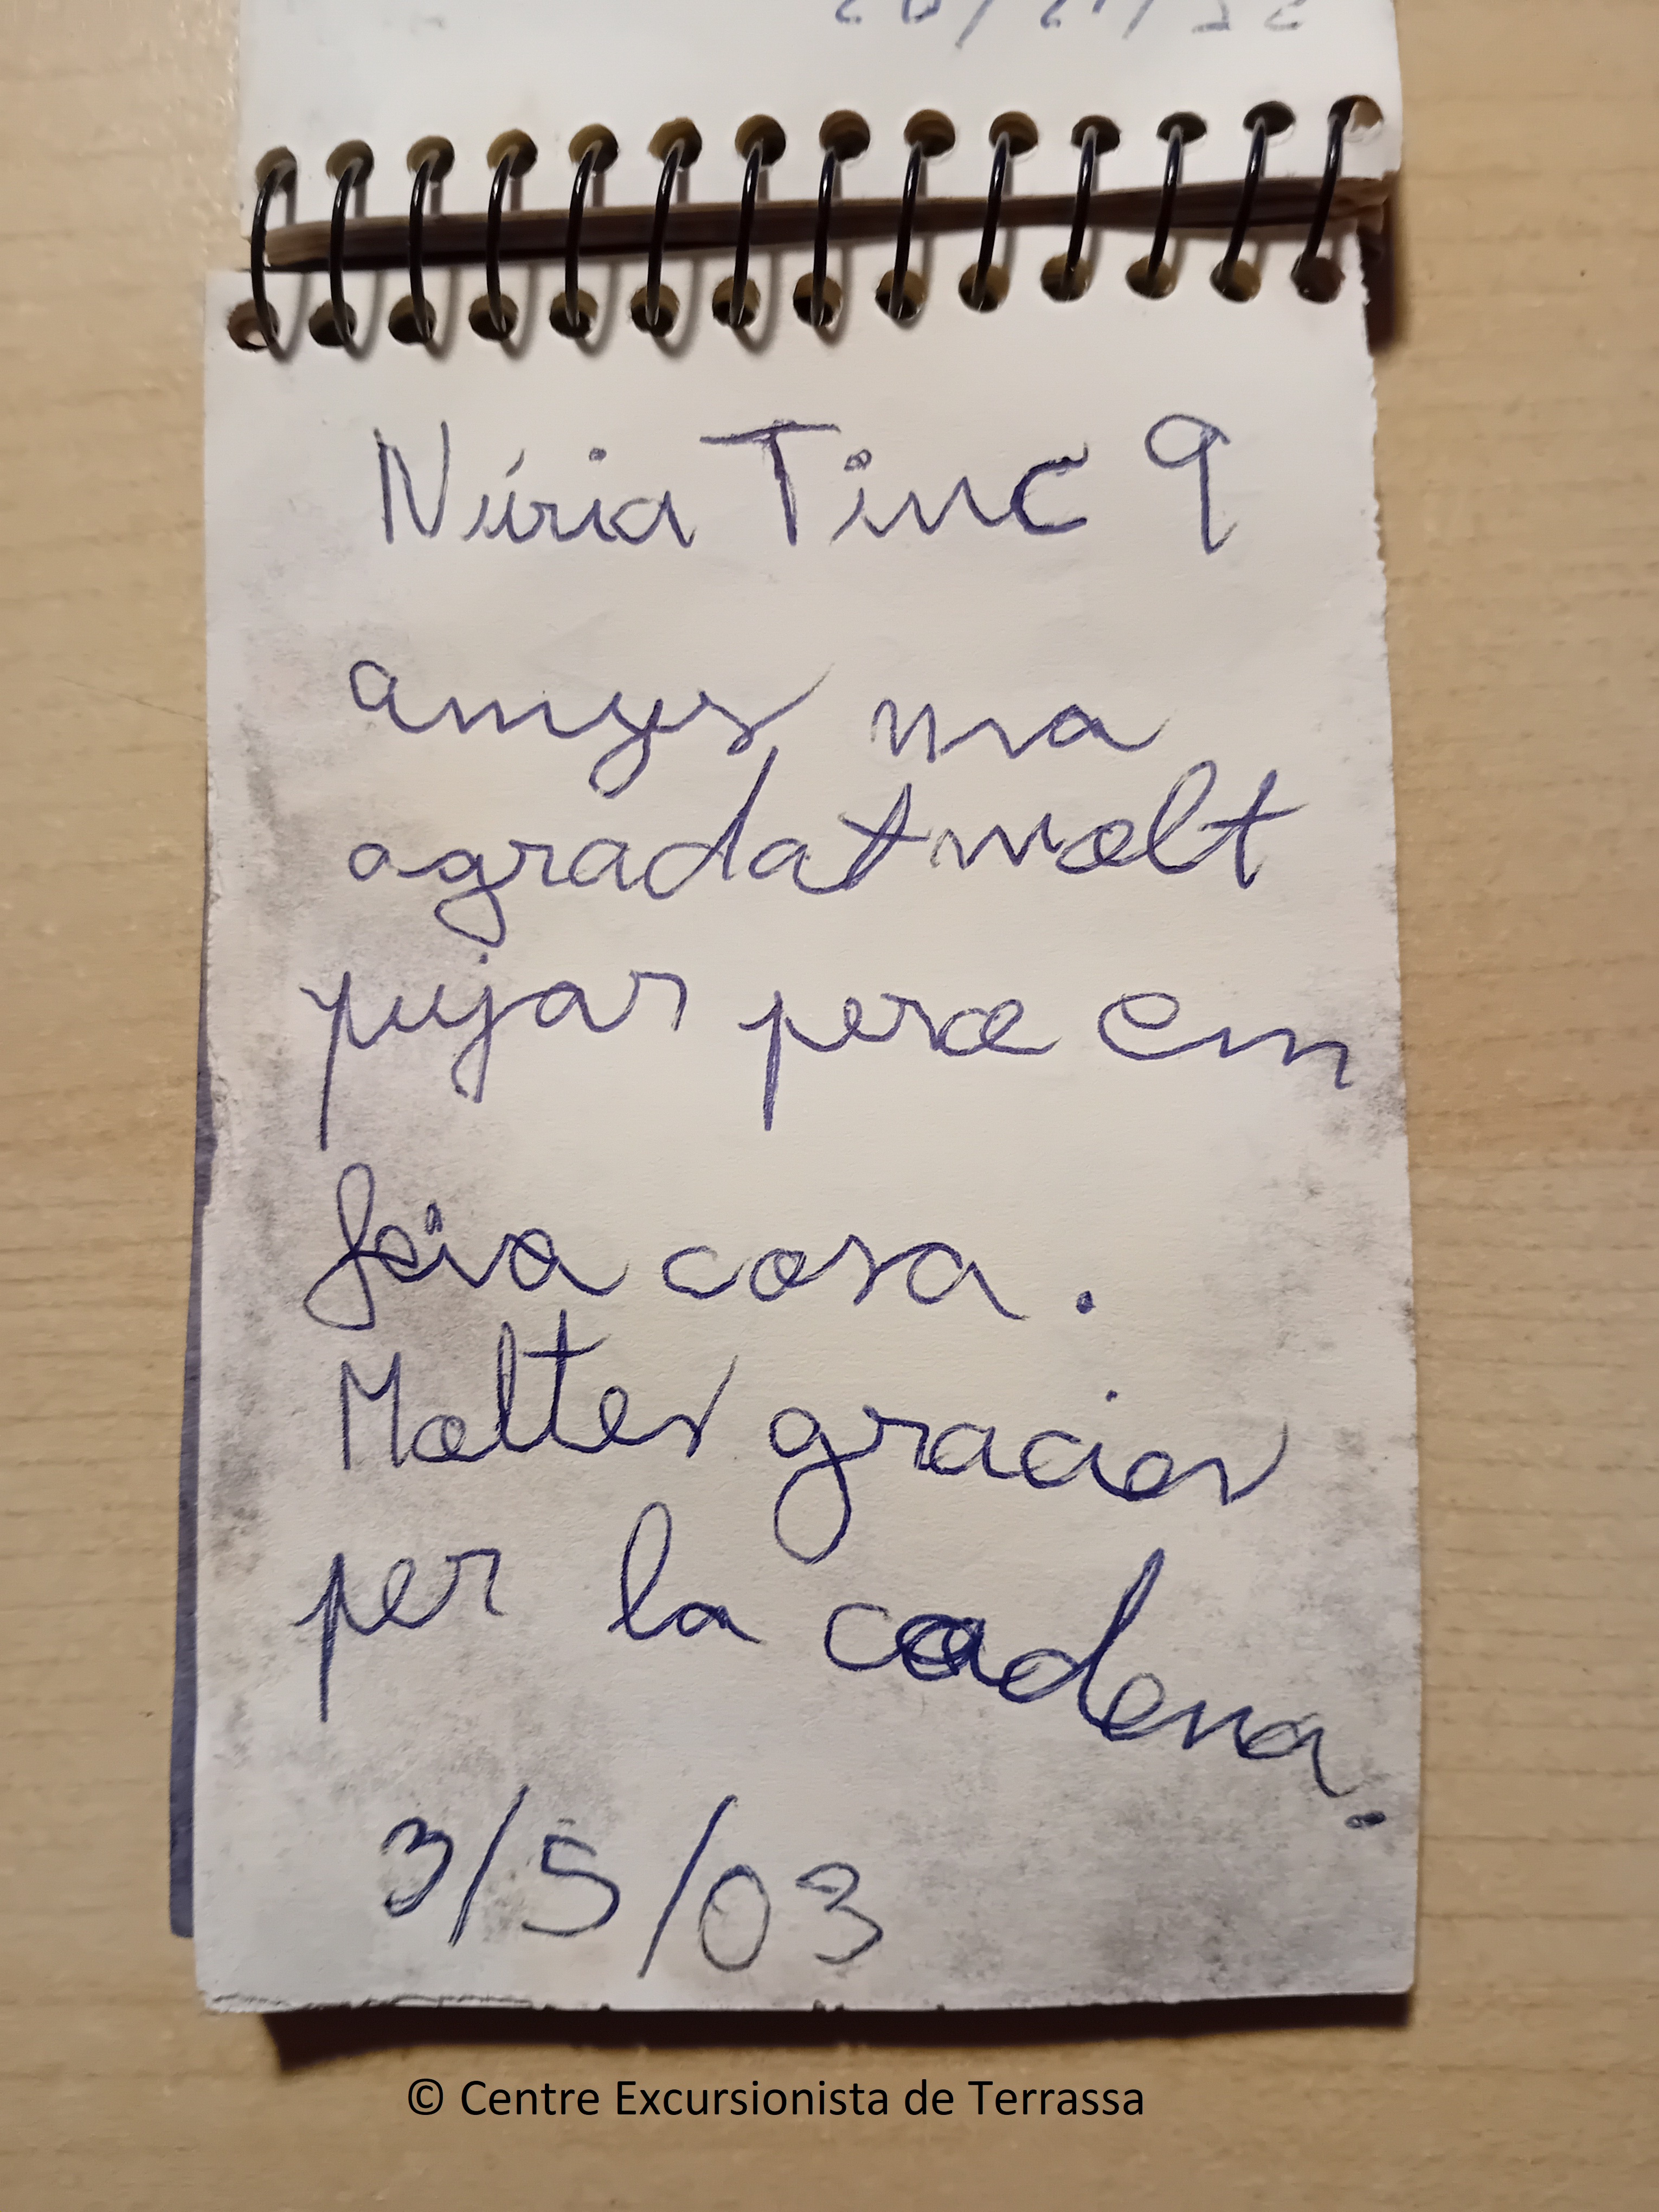 Núria Tinc 9
amys ma
agradat molt
pujar pero em
feia cosa.
Moltes gracies
per la cadena.
3/5/03
© Centre Excursionista de Terrassa